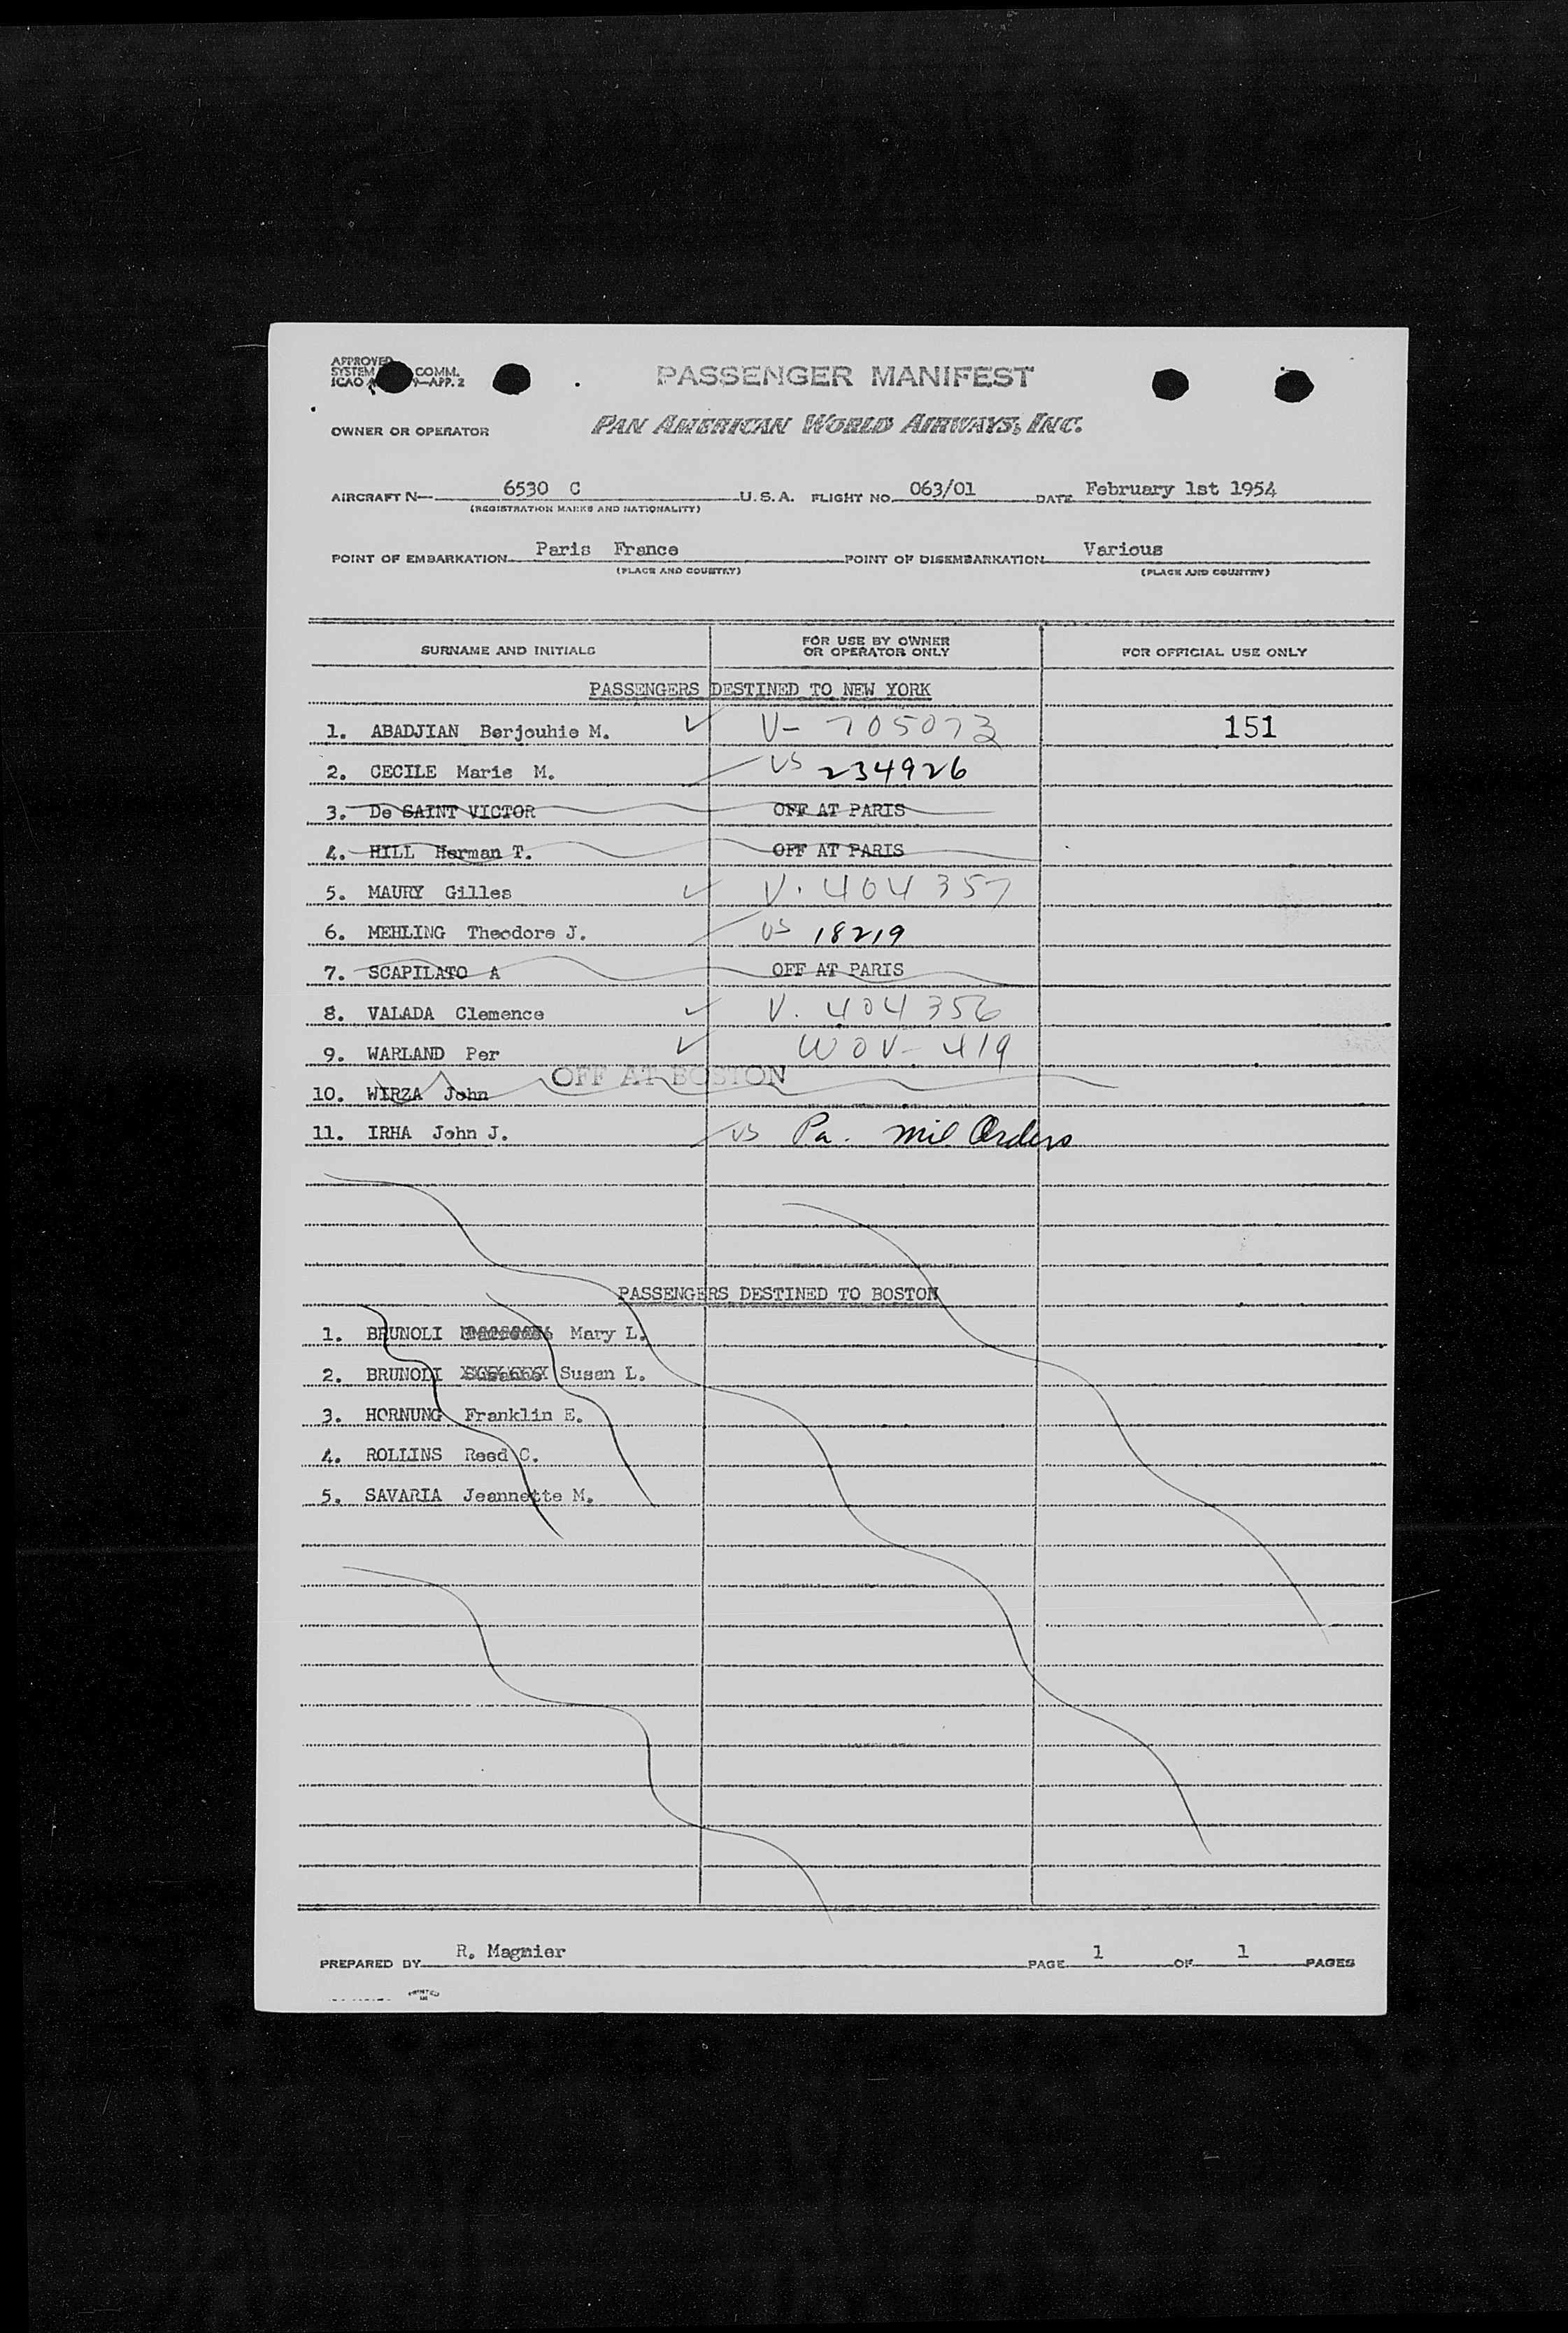 APPROVED
SYSTEM COMM.
ICAO 9—APP. 2
PASSENGER MANIFEST
OWNER OR OPERATOR PAN AMERICAN WORLD AIRWAYS, INC.
AIRCRAFT N— 6530 C U.S.A. FLIGHT NO. 063/01 DATE February 1st 1954
(REGISTRATION MARKS AND NATIONALITY)
POINT OF EMBARKATION Paris France POINT OF DISEMBARKATION Various
(PLACE AND COUNTRY) (PLACE AND COUNTRY)
SURNAME AND INITIALS FOR USE BY OWNER OR OPERATOR ONLY FOR OFFICIAL USE ONLY
PASSENGERS DESTINED TO NEW YORK
1. ABADJIAN Berjouhie M. ✓ V- 705073 151
2. CECILE Marie M. US 234926
3. De SAINT VICTOR OFF AT PARIS
4. HILL Herman T. OFF AT PARIS
5. MAURY Gilles ✓ V. 404357
6. MEHLING Theodore J. US 18219
7. SCAPILATO A OFF AT PARIS
8. VALADA Clemence ✓ V. 404356
9. WARLAND Per ✓ WOV- 419
10. WIRZA John OFF AT BOSTON
11. IRHA John J. US Pa. Mil Orders
PASSENGERS DESTINED TO BOSTON
1. BRUNOLI Mary L.
2. BRUNOLI Susan L.
3. HORNUNG Franklin E.
4. ROLLINS Reed C.
5. SAVARIA Jeannette M.
PREPARED BY R. Magnier PAGE 1 OF 1 PAGES